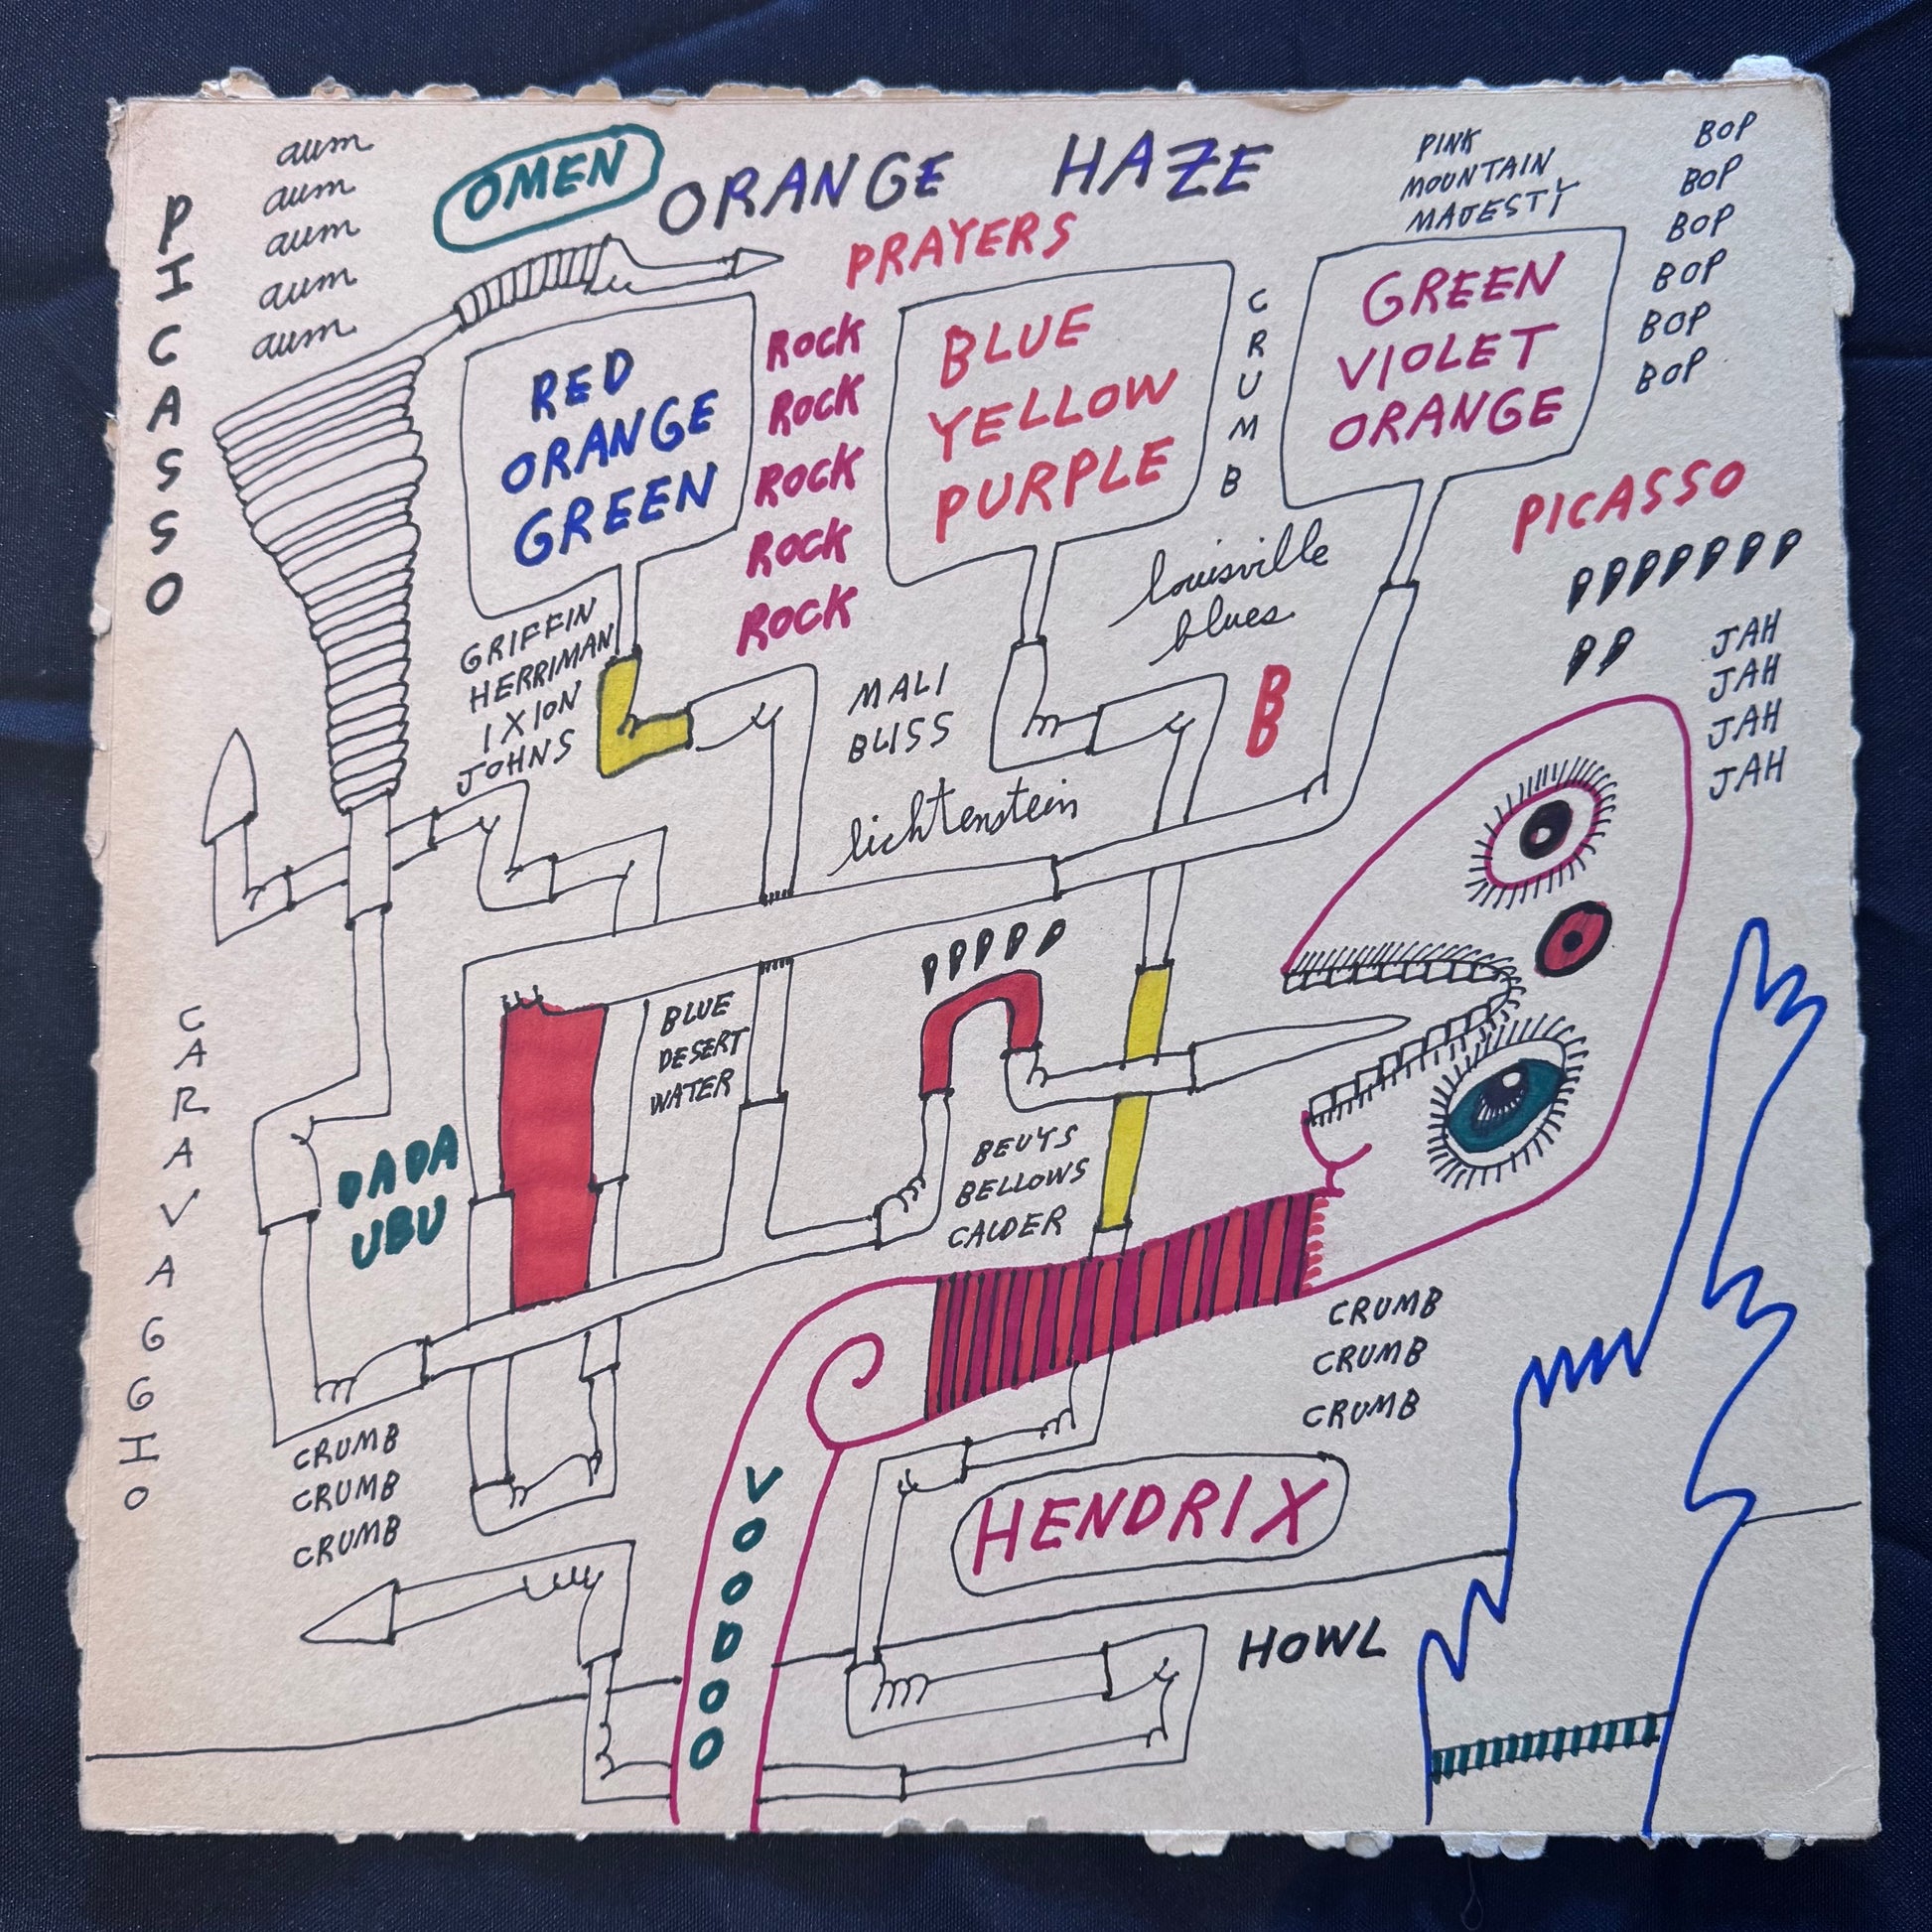 aum
aum
aum
aum
aum
PICASSO
OMEN
ORANGE HAZE
PRAYERS
PINK
MOUNTAIN
MAJESTY
BOP
BOP
BOP
BOP
BOP
BOP
RED
ORANGE
GREEN
ROCK
ROCK
ROCK
ROCK
ROCK
BLUE
YELLOW
PURPLE
CRUMB
GREEN
VIOLET
ORANGE
PICASSO
GRIFFIN
HERRIMAN
IXION
JOHNS
MALI
BLISS
lichtenstein
louisville
blues
B
B
JAH
JAH
JAH
JAH
CARAVAGGIO
DADA
UBU
BLUE
DESERT
WATER
BEUYS
BELLOWS
CALDER
CRUMB
CRUMB
CRUMB
CRUMB
CRUMB
CRUMB
VOODOO
HENDRIX
HOWL